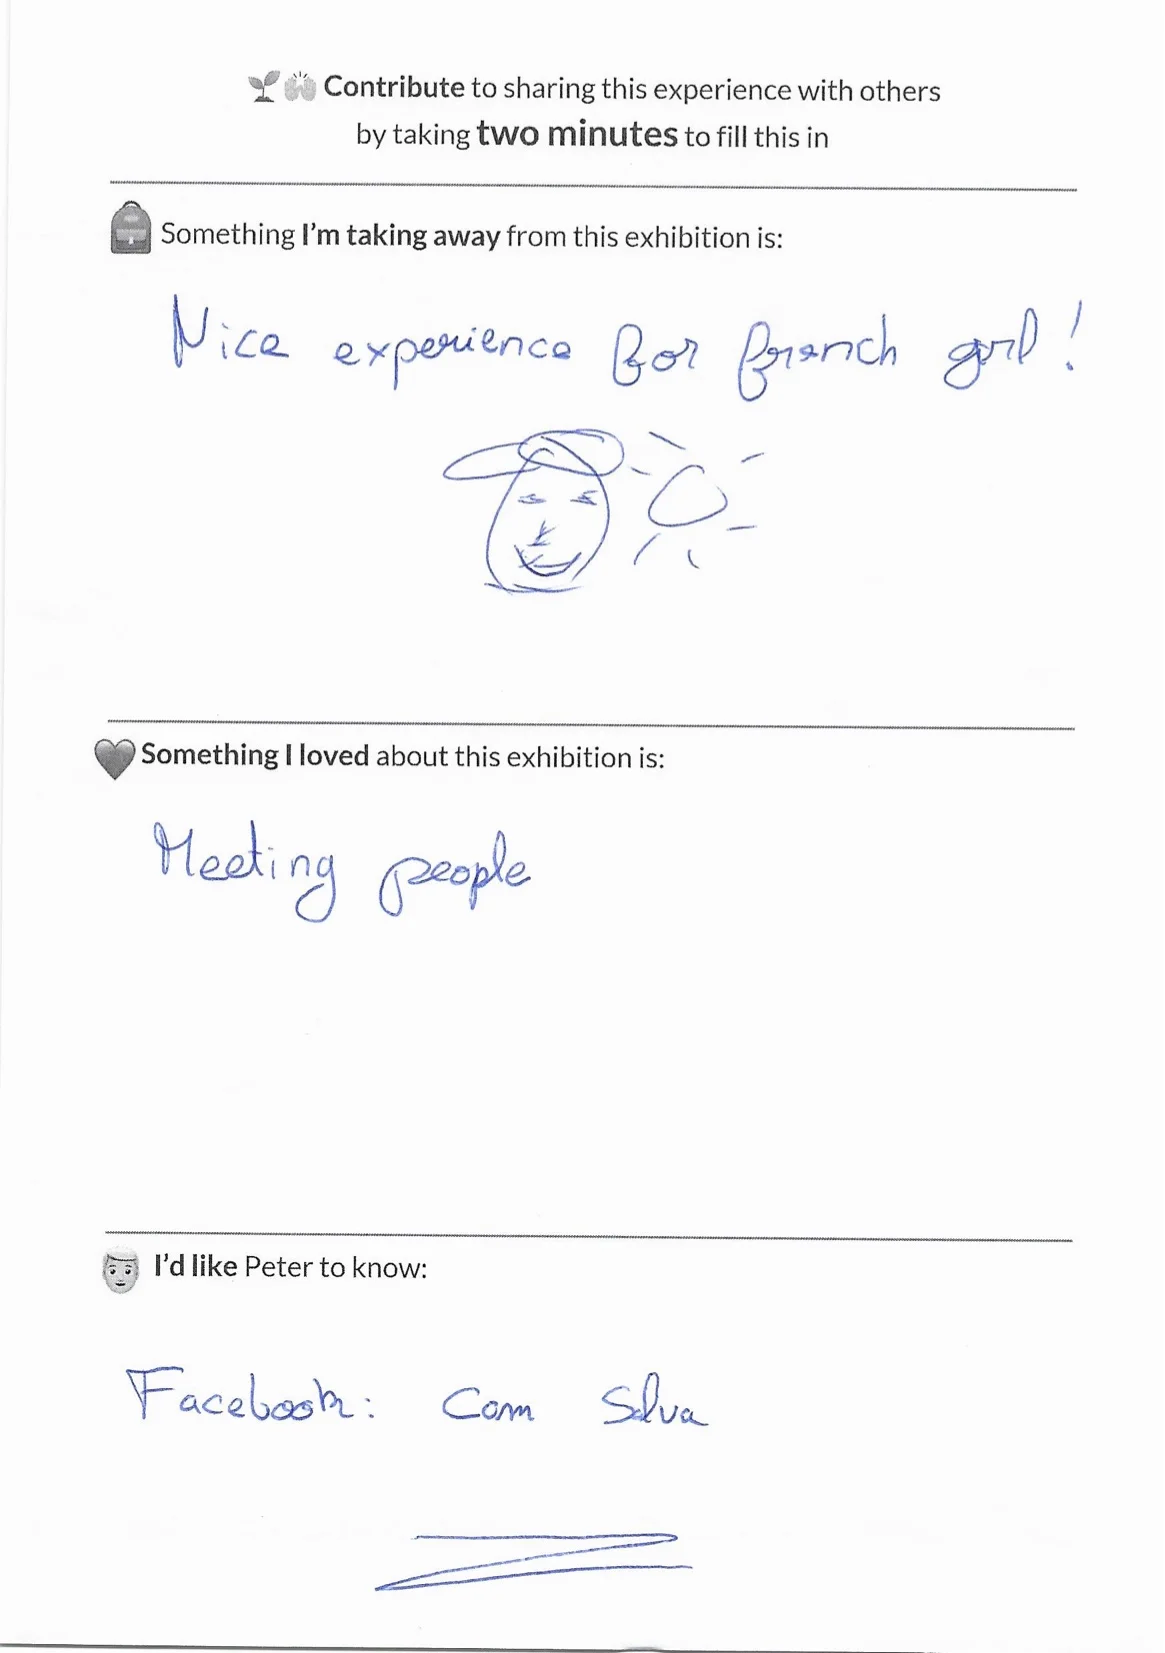 Contribute to sharing this experience with others
by taking two minutes to fill this in
Something I'm taking away from this exhibition is:
Nice experience for french girl !
Something I loved about this exhibition is:
Meeting people
I'd like Peter to know:
Facebook: Com Selva